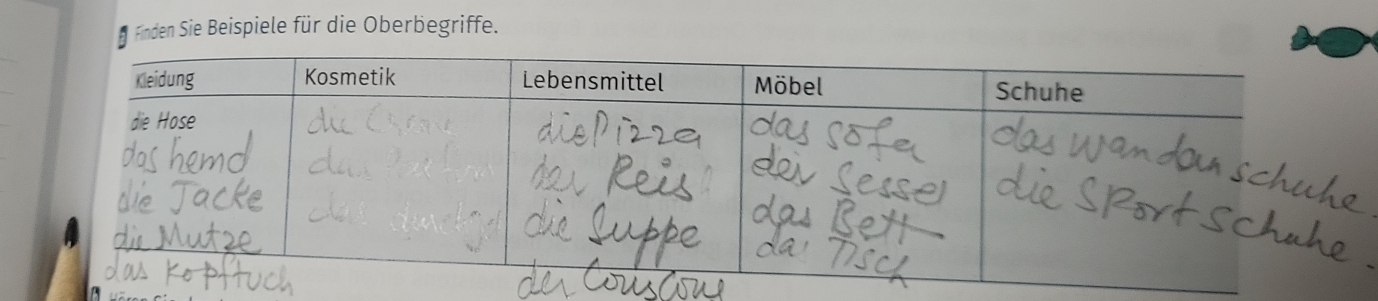 Finden Sie Beispiele für die Oberbegriffe.
Kleidung Kosmetik Lebensmittel Möbel Schuhe
die Hose die diePizza das sofa das wandanschuhe.
das hemd der Reis der Sessel die Sportschuhe.
die Jacke die Suppe das Bett
die Mutze das Tisch
das Kopftuch der Couscous